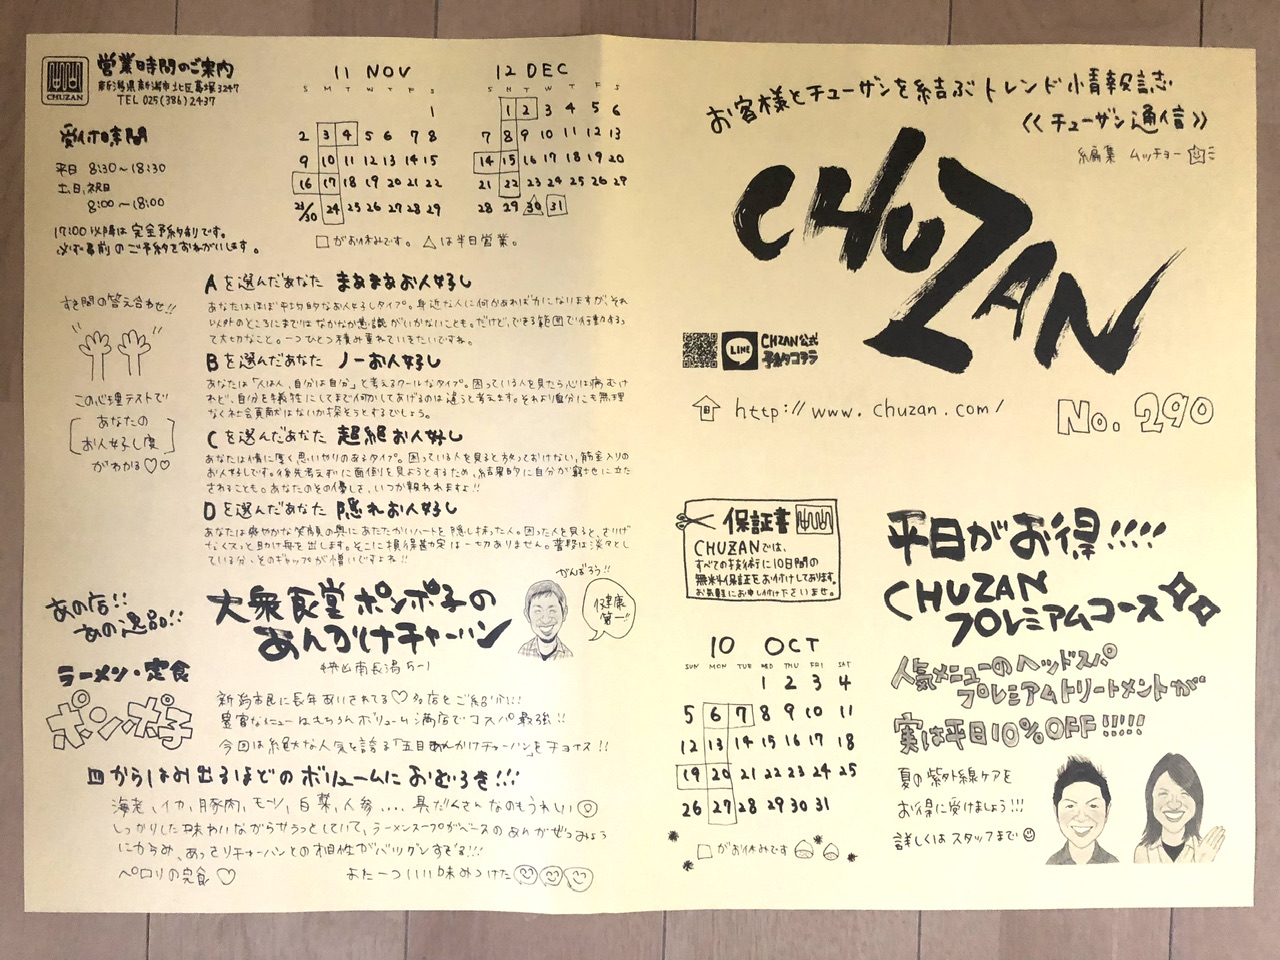 お客様とチューザンを結ぶトレンド情報誌
《チューザン通信》
編集 ムッチョー
CHUZAN
LINE
CHUZAN公式
予約はコチラ
http://www.chuzan.com/
No.290
保証書
CHUZANでは、
すべての技術に10日間の
無料保証をお付けしております。
お気軽にお申し付け下さいませ。
平日がお得!!!!
CHUZAN
プレミアムコース
人気メニューのヘッドスパ
プレミアムトリートメントが
実は平日10%OFF!!!!!
夏の紫外線ケアを
お得に受けましょう!!!
詳しくはスタッフまで
10 OCT
SUN MON TUE WED THU FRI SAT
1 2 3 4
5 6 7 8 9 10 11
12 13 14 15 16 17 18
19 20 21 22 23 24 25
26 27 28 29 30 31
□がお休みです
CHUZAN
営業時間のご案内
新潟県新潟市北区葛塚3247
TEL 025(386)2437
受付時間
平日 8:30〜18:30
土、日、祝日
8:00〜18:00
17:00以降は完全予約制です。
必ず事前のご予約をおねがいします。
11 NOV
S M T W T F S
1
2 3 4 5 6 7 8
9 10 11 12 13 14 15
16 17 18 19 20 21 22
23/30 24 25 26 27 28 29
12 DEC
S M T W T F S
1 2 3 4 5 6
7 8 9 10 11 12 13
14 15 16 17 18 19 20
21 22 23 24 25 26 27
28 29 30 31
□がお休みです。 △は半日営業。
すき間の答え合わせ!!
この心理テストで
あなたの
お人好し度
がわかる♡♡
Aを選んだあなた まあまあお人好し
あなたはほぼ平均的なお人好しタイプ。身近な人に何かあれば力になりますが、それ
以外のところにまではなかなか意識がいかないことも。だけど、できる範囲で行動するっ
て大切なこと。一つひとつ積み重ねていきたいですね。
Bを選んだあなた ノーお人好し
あなたは「人は人、自分は自分」と考えるクールなタイプ。困っている人を見たら心は痛むけ
れど、自分を犠牲にしてまで何かしてあげるのは違うと考えます。それより自分にも無理
なく社会貢献はないか探そうとするでしょう。
Cを選んだあなた 超絶お人好し
あなたは情に厚く思いやりのあるタイプ。困っている人を見ると放っておけない、筋金入りの
お人好しです。後先考えずに面倒を見ようとするため、結果的に自分が窮地に立た
されることも。あなたのその優しさ、いつか報われますよ!!
Dを選んだあなた 隠れお人好し
あなたは爽やかな笑顔の奥にあたたかいハートを隠し持った人。困った人を見ると、さりげ
なくスっと助け舟を出します。そこに損得勘定は一切ありません。普段は淡々とし
ている分、そのギャップが憎いですよね!!
あの店!!
あの逸品!!
大衆食堂ポンポ子の
あんかけチャーハン
がんばろう!!
健康第一!!
ラーメン・定食
ポンポ子
新潟市民に長年あいされてる♡お店をご紹介!!!
豊富なメニューはもちろんボリューム満点でコスパ最強!!
今回は絶大な人気を誇る「五目あんかけチャーハン」をチョイス!!
皿からはみ出るほどのボリュームにおどろき!!!
海老、イカ、豚肉、モツ、白菜、人参.... 具だくさんなのもうれしい
しっかりした味わいながらサラっとしていて、ラーメンスープがベースのあんがぜつみょう
にからみ、あっさりチャーハンとの相性がバツグンすぎる!!!
ペロリの完食♡
また一ついい味みつけた